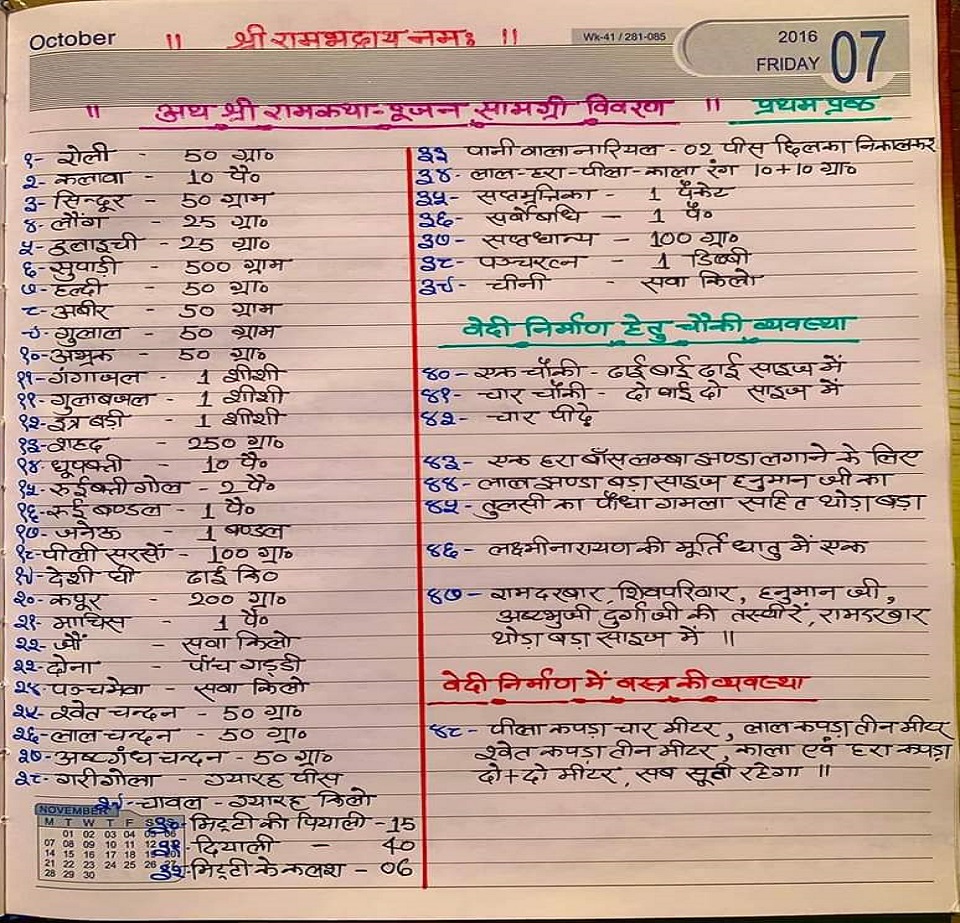 October
॥ श्री रामभद्राय नमः ॥
Wk-41 / 281-085
2016
FRIDAY 07
॥ अथ श्री रामकथा-पूजन सामग्री विवरण ॥ प्रथम पृष्ठ
१- रोली - 50 ग्रा०
२- कलावा - 10 पै०
३- सिन्दूर - 50 ग्राम
४- लौंग - 25 ग्रा०
५- इलाइची - 25 ग्रा०
६- सुपाड़ी - 500 ग्राम
७- हल्दी - 50 ग्रा०
८- अबीर - 50 ग्राम
९- गुलाल - 50 ग्राम
१०- अभ्रक - 50 ग्रा०
११- गंगाजल - 1 शीशी
११- गुलाबजल - 1 शीशी
१२- इत्र बड़ी - 1 शीशी
१३- शहद - 250 ग्रा०
१४- धूपबत्ती - 10 पै०
१५- रुईबत्ती गोल - 2 पै०
१६- रुई बण्डल - 1 पै०
१७- जनेऊ - 1 बण्डल
१८- पीली सरसों - 100 ग्रा०
१९- देशी घी ढाई कि०
२०- कपूर - 200 ग्रा०
२१- माचिस - 1 पै०
२२- जौं - सवा किलो
२२- दोना - पाँच गड्डी
२४- पञ्चमेवा - सवा किलो
२५- श्वेत चन्दन - 50 ग्रा०
२६- लाल चन्दन - 50 ग्रा०
२७- अष्टगंध चन्दन - 50 ग्रा०
२८- गरीगोला - ग्यारह पीस
२९- चावल - ग्यारह किलो
३०- मिट्टी की पियाली - 15
३१- दियाली - 40
३२- मिट्टी के कलश - 06
NOVEMBER
M T W T F S S
01 02 03 04 05 06
07 08 09 10 11 12
14 15 16 17 18 19 20
21 22 23 24 25 26 27
28 29 30
३३ पानी वाला नारियल - 02 पीस छिलका निकालकर
३४- लाल-हरा-पीला-काला रंग 10+10 ग्रा०
३५- सप्तमृत्तिका - 1 पैकेट
३६- सर्वौषधि - 1 पै०
३७- सप्तधान्य - 100 ग्रा०
३८- पञ्चरत्न - 1 डिब्बी
३९- चीनी - सवा किलो
वेदी निर्माण हेतु चौकी व्यवस्था
४०- एक चौकी - ढाई बाई ढाई साइज में
४१- चार चौकी - दो बाई दो साइज में
४२- चार पीढ़े
४३- एक हरा बाँस लम्बा झण्डा लगाने के लिए
४४- लाल झण्डा बड़ा साइज हनुमान जी का
४५- तुलसी का पौधा गमला सहित थोड़ा बड़ा
४६- लक्ष्मीनारायण की मूर्ति धातु में एक
४७- रामदरबार, शिवपरिवार, हनुमान जी,
अष्टभुजी दुर्गा जी की तस्वीरें, रामदरबार
थोड़ा बड़ा साइज में ॥
वेदी निर्माण में वस्त्र की व्यवस्था
४८- पीला कपड़ा चार मीटर, लाल कपड़ा तीन मीटर
श्वेत कपड़ा तीन मीटर, काला एवं हरा कपड़ा
दो+दो मीटर, सब सूती रहेगा ॥